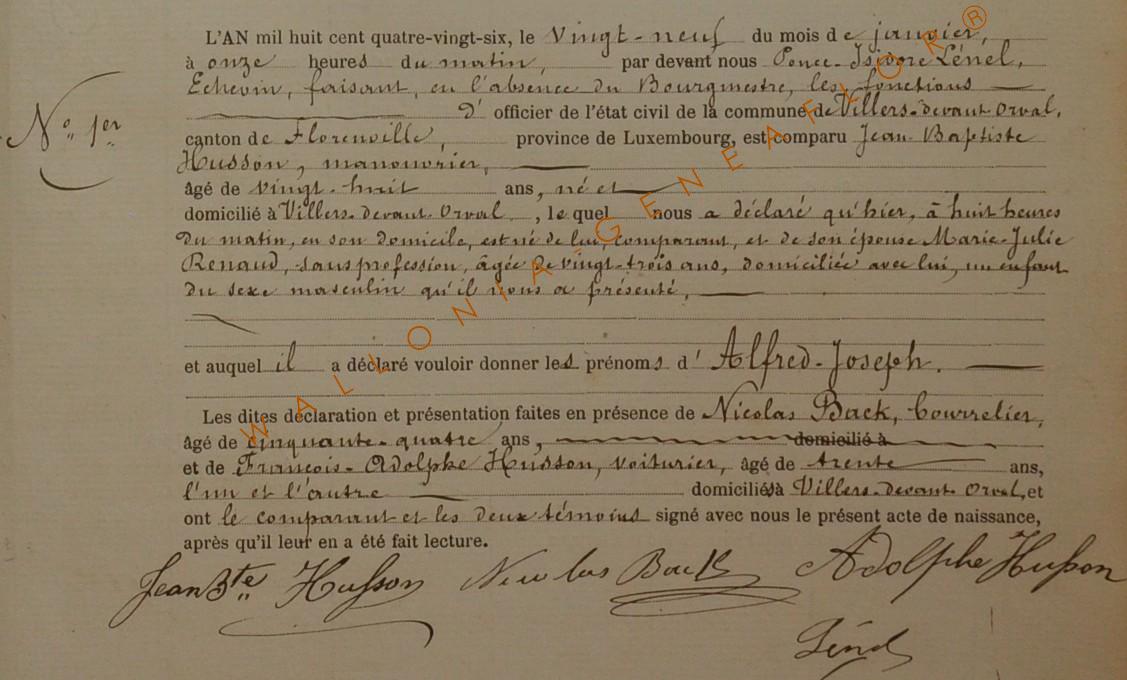 L'AN mil huit cent quatre-vingt-six, le Vingt-neuf du mois de janvier,
à onze heures du matin, par devant nous Ponce-Isidore Lénel,
Echevin, faisant, en l'absence du Bourgmestre, les fonctions
N° 1er
D' officier de l'état civil de la commune de Villers-devant Orval,
canton de Florenville, province de Luxembourg, est comparu Jean Baptiste
Husson, manouvrier,
âgé de vingt-huit ans, né et
domicilié à Villers-devant-Orval, le quel nous a déclaré qu'hier, à huit heures
du matin, en son domicile, est né de lui, comparant, et de son épouse Marie-Julie
Renaud, sans profession, âgée de vingt-trois ans, domiciliée avec lui, un enfant
du sexe masculin qu'il nous a présenté,
et auquel il a déclaré vouloir donner les prénoms d' Alfred-Joseph.
Les dites déclaration et présentation faites en présence de Nicolas Back, Bourrelier,
âgé de cinquante-quatre ans, domicilié à
et de François-Adolphe Husson, voiturier, âgé de trente ans,
l'un et l'autre domiciliés à Villers-devant Orval, et
ont le comparant et les deux témoins signé avec nous le présent acte de naissance,
après qu'il leur en a été fait lecture.
Jean Bte Husson Nicolas Back Adolphe Husson
Lénel
WALLONIA-GENEAFLOR®